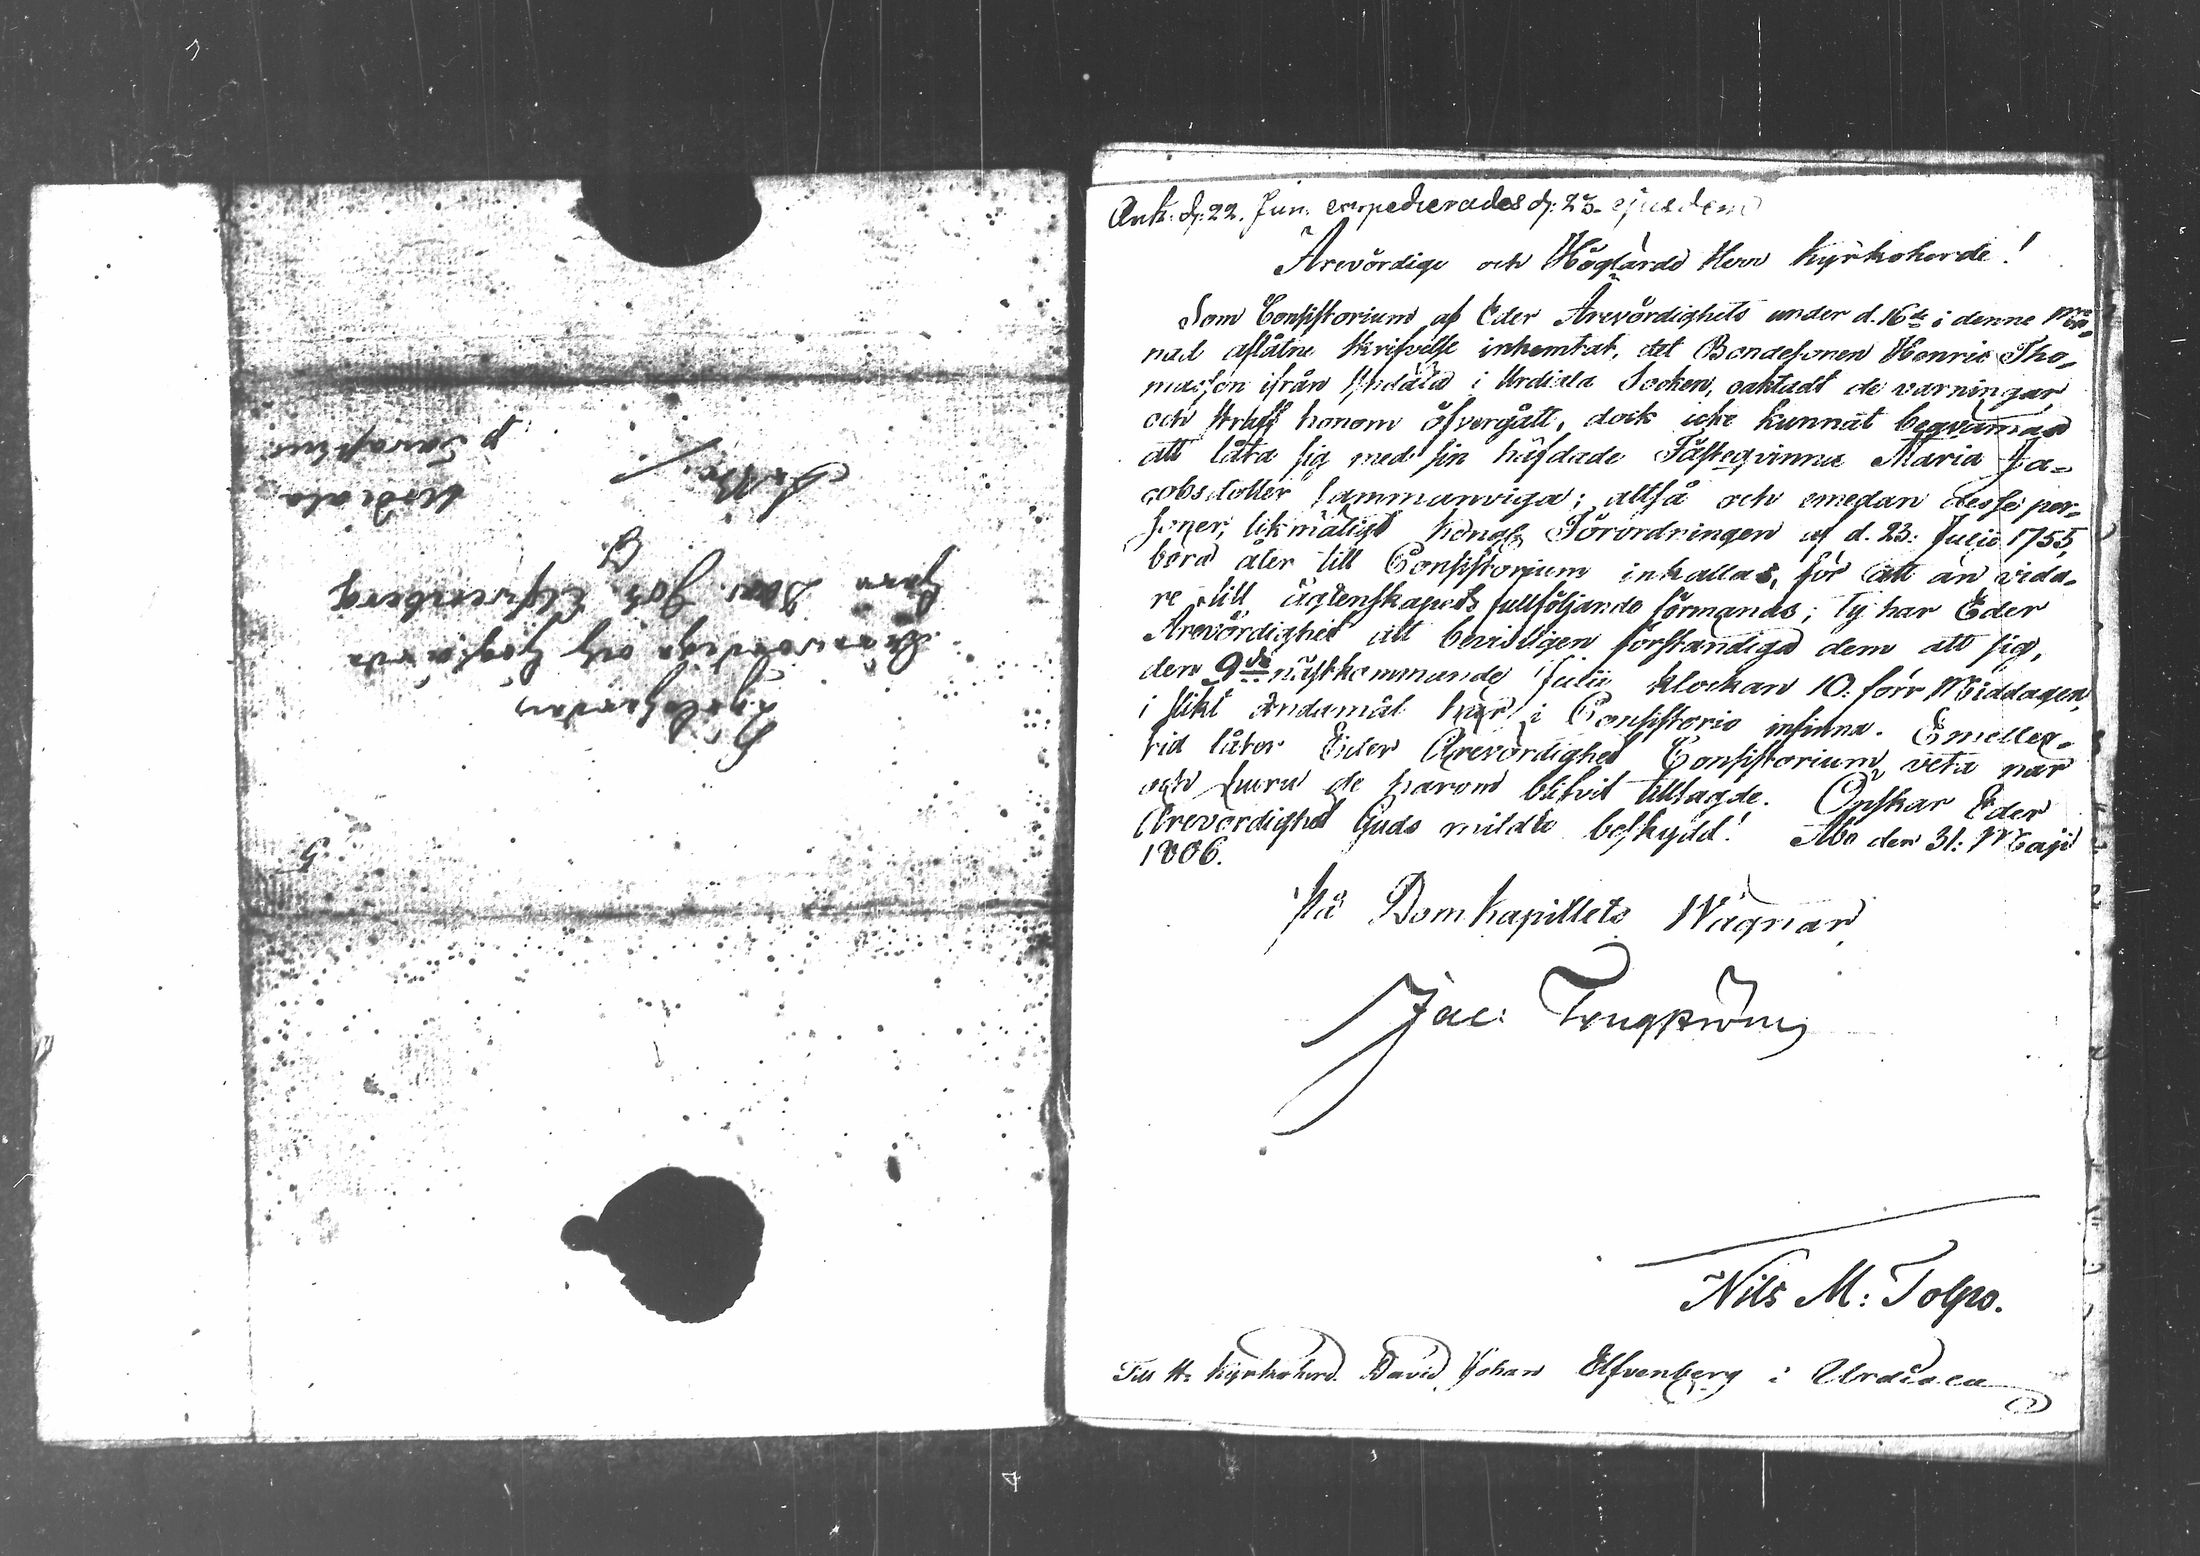 Kyrkoherden
Ärewördige och Höglärde
Herr Dav. Joh. Elfvenberg
Åbo
Urdiala
p Tavastehus
Ank. d. 22. Jun. expedierades d. 23. ejusdem
Ärevördige och Höglärde Herr Kyrkoherde!
Som Consistorium af Eder Ärevördighets under d. 16de i denne Må=
nad aflåtne skrifvelse inhemtat, det Bondesonen Henric Tho=
masson ifrån i Urdiala Socken, oaktadt de varningar
och straff honom öfvergått, dock icke kunnat beqvämas
att låta sig med sin häfdade Fästeqvinna Maria Ja=
cobsdotter sammanviga; altså och emedan desse per=
soner, likmätigt Kongl. Förordningen af d. 23. Julii 1755,
böra åter till Consistorium inkallas, för att än vida=
re till ägtenskapets fullföljande förmanas; Ty har Eder
Ärevördighet att bevisligen förständiga dem att sig,
den 9de nästkommande Julii klockan 10. förr Middagen,
i slikt ändamål här i Consistorio infinna. Emeller=
tid låter Eder Ärevördighet Consistorium veta när
och huru de härom blifvit tillsagde. Önskar Eder
Ärevördighet Guds milda beskydd! Åbo den 31. Maji
1806.
På Domkapitlets Wägnar
Jac: Tengström
Nils M: Tolpo.
Till H. Kyrkoherd. David Johan Elfvenberg i Urdiala